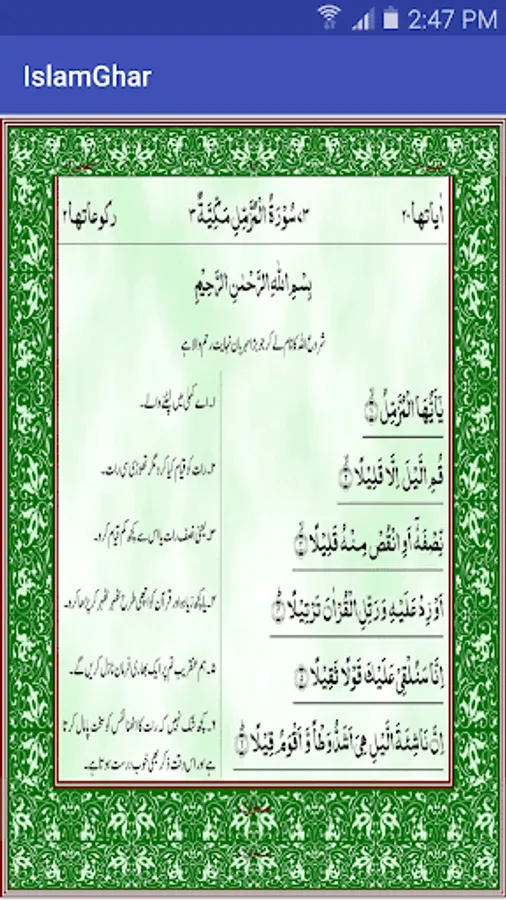 2:47 PM
IslamGhar
اٰیاتھا۲۰ ۷۳ سُوْرَةُ الْمُزَّمِّلِ مَكِّيَّةٌ ۳ رکوعاتھا۲
بِسْمِ اللّٰهِ الرَّحْمٰنِ الرَّحِيْمِ
شروع اللہ کا نام لے کر جو بڑا مہربان نہایت رحم والا ہے
يٰۤاَيُّهَا الْمُزَّمِّلُ ۙ‏﴿۱﴾
۱۔اے کملی میں لپٹنے والے۔
قُمِ الَّيْلَ اِلَّا قَلِيْلًا ۙ‏﴿۲﴾
۲۔رات کو قیام کیا کرو مگر تھوڑی سی رات۔
نِّصْفَهٗۤ اَوِ انْقُصْ مِنْهُ قَلِيْلًا ۙ‏﴿۳﴾
۳۔یعنی نصف رات یا اس سے کچھ کم قیام کرو۔
اَوْ زِدْ عَلَيْهِ وَ رَتِّلِ الْقُرْاٰنَ تَرْتِيْلًا ؕ‏﴿۴﴾
۴۔یا کچھ زیادہ اور قرآن کو اچھی طرح ٹھہر ٹھہر کر پڑھا کرو۔
اِنَّا سَنُلْقِيْ عَلَيْكَ قَوْلًا ثَقِيْلًا ‏﴿۵﴾
۵۔ہم عنقریب تم پر ایک بھاری فرمان نازل کریں گے۔
اِنَّ نَاشِئَةَ الَّيْلِ هِيَ اَشَدُّ وَطْاً وَّ اَقْوَمُ قِيْلًا ؕ‏﴿۶﴾
۶۔کچھ شک نہیں کہ رات کا اٹھنا نفس کو سخت پامال کرتا
ہے اور اس وقت ذکر بھی خوب درست ہوتا ہے۔